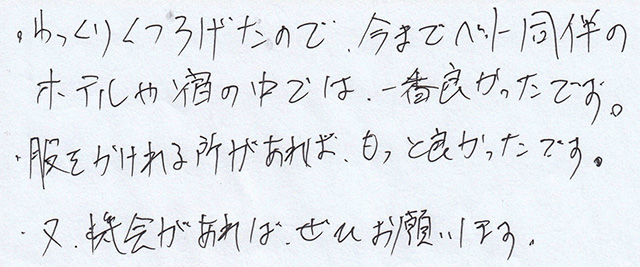 ・ゆっくりくつろげたので、今までペット同伴の
ホテルや宿の中では、一番良かったです。
・服をかけれる所があれば、もっと良かったです。
・又、機会があれば、ぜひお願いします。